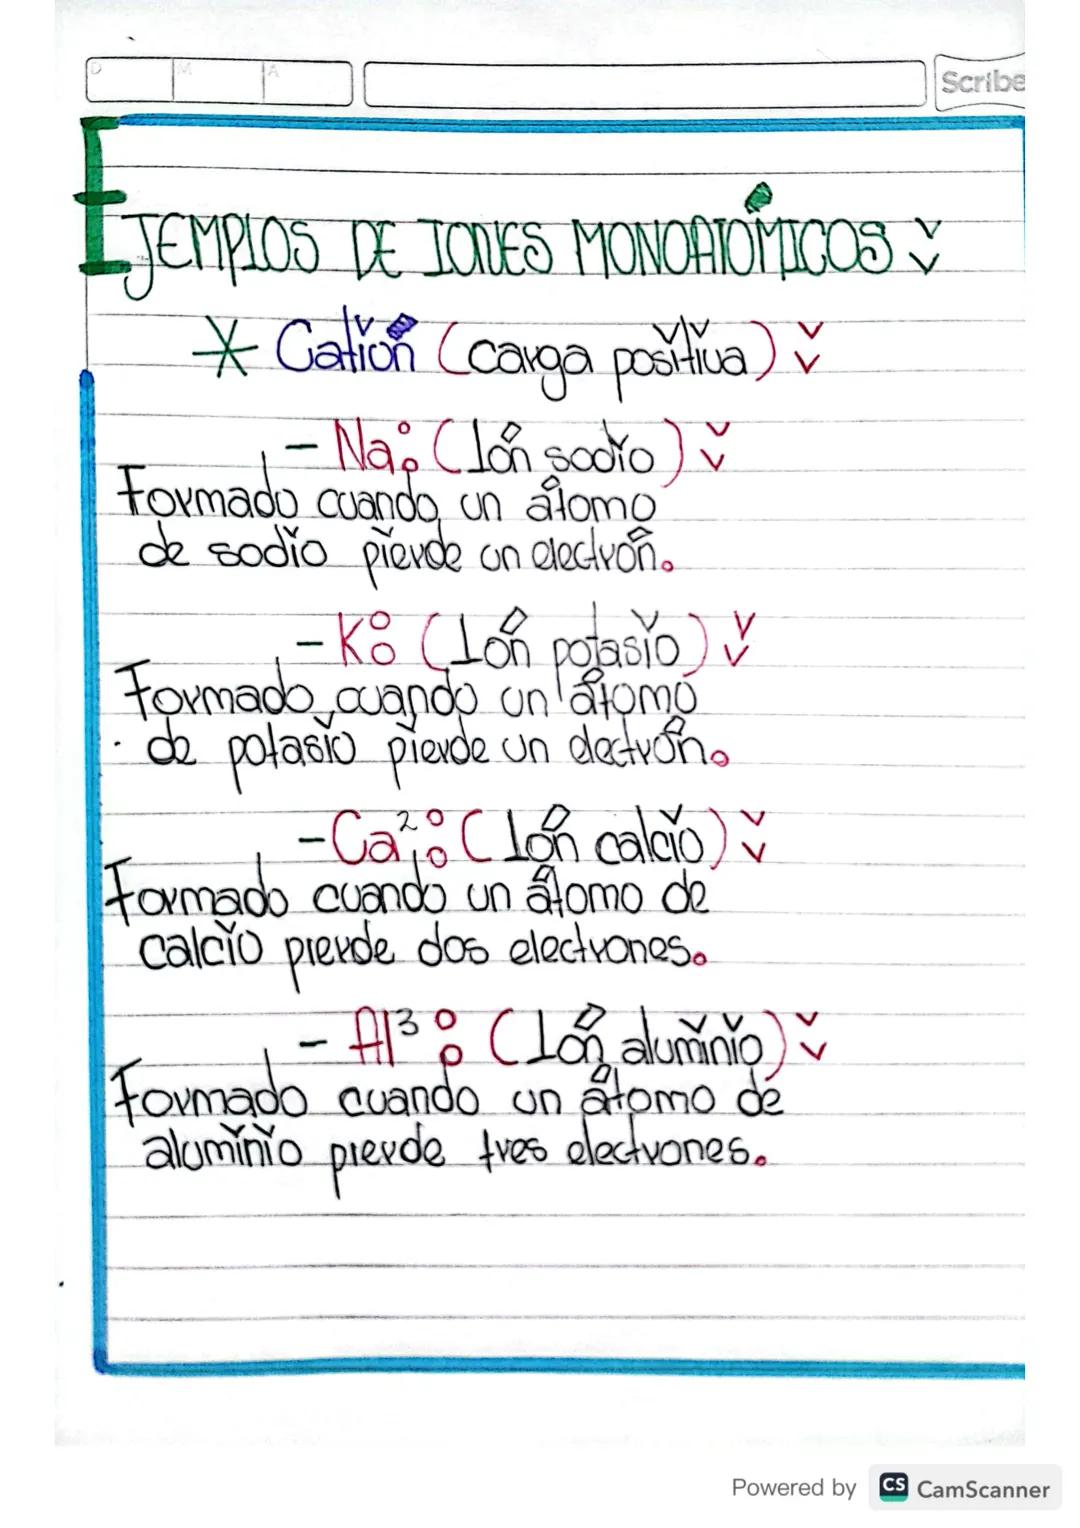 D M A
Scribe
EJEMPLOS DE IONES MONOATÓMICOS:
* Catión (carga positiva):
- Na: (Ión sodio):
Formado cuando un átomo
de sodio pierde un electrón.
- K: (Ión potasio):
Formado cuando un átomo
de potasio pierde un electrón.
- Ca²: (Ión calcio):
Formado cuando un átomo de
calcio pierde dos electrones.
- Al³: (Ión aluminio):
Formado cuando un átomo de
aluminio pierde tres electrones.
Powered by CS CamScanner